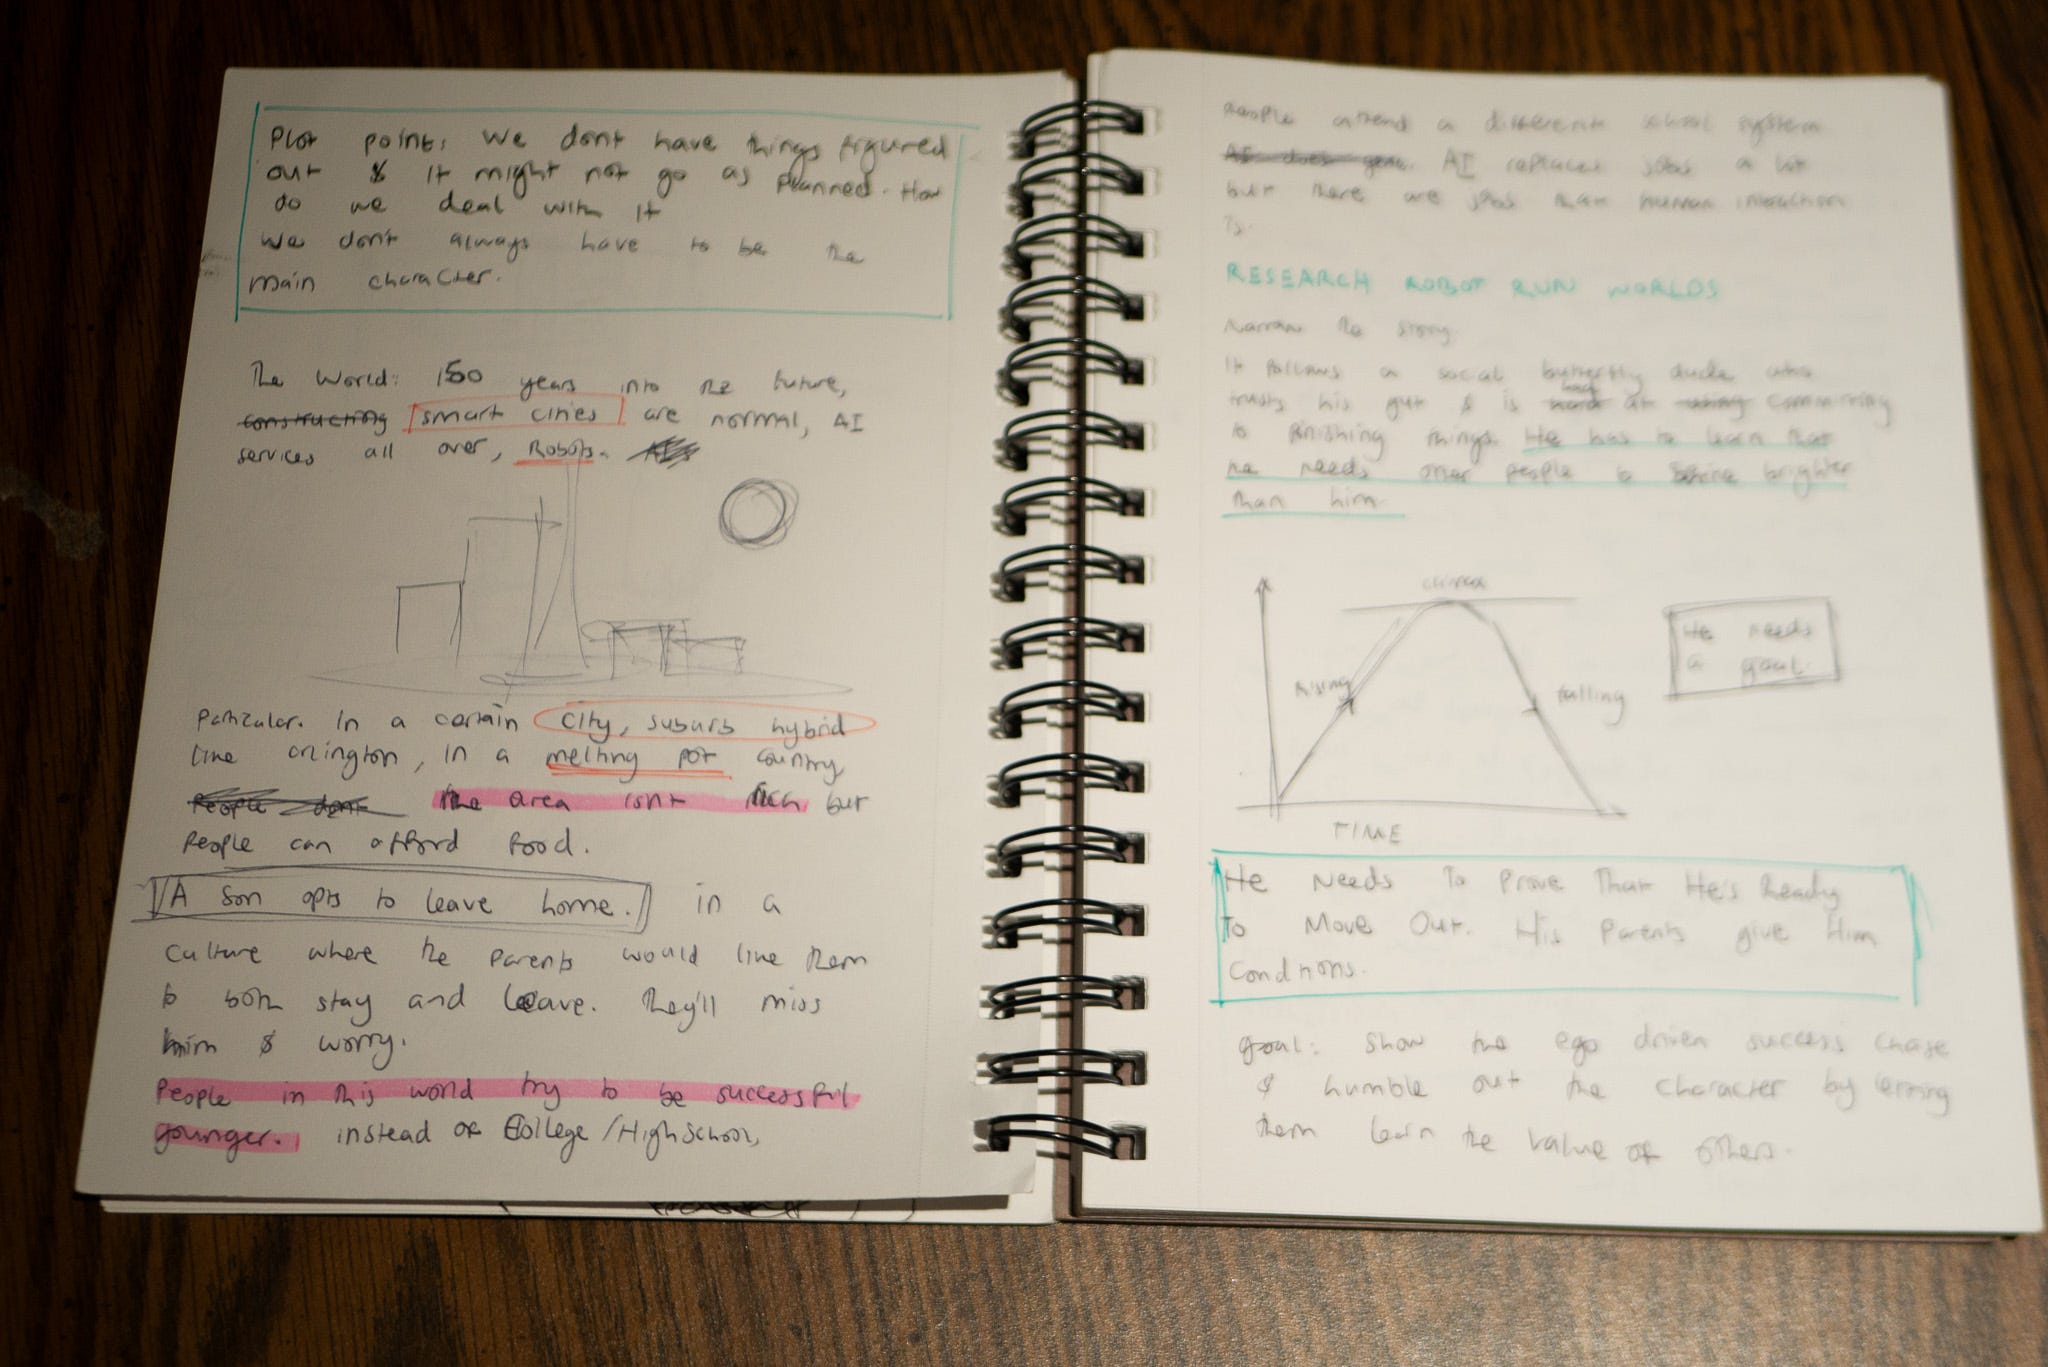 Plot points: We dont have things figured
out & it might not go as planned. How
do we deal with it
We don't always have to be the
main character.
The World: 150 years into the future,
constructing smart cities are normal, AI
services all over, Robots.
Particular. In a certain city, suburb hybrid
like arlington, in a melting pot country
People dont the area isnt rich but
People can afford food.
A son opts to leave home. in a
culture where the parents would like them
to both stay and leave. They'll miss
him & worry.
People in this world try to be successful
younger. instead of College/HighSchool,
People attend a different school system
AI does AI replaces jobs a lot
but there are jobs that human interaction
is.
RESEARCH ROBOT RUN WORLDS
Narrow the story.
It follows a social butterfly dude who
trusts his gut & is hard bad at committing
to finishing things. He has to learn that
he needs other people to shine brighter
than him.
climax
rising
falling
He needs
a goal.
TIME
He Needs To Prove That He's Ready
To Move Out. His Parents give Him
Conditions.
goal: show the ego driven success chase
& humble out the character by letting
them learn the value of others.